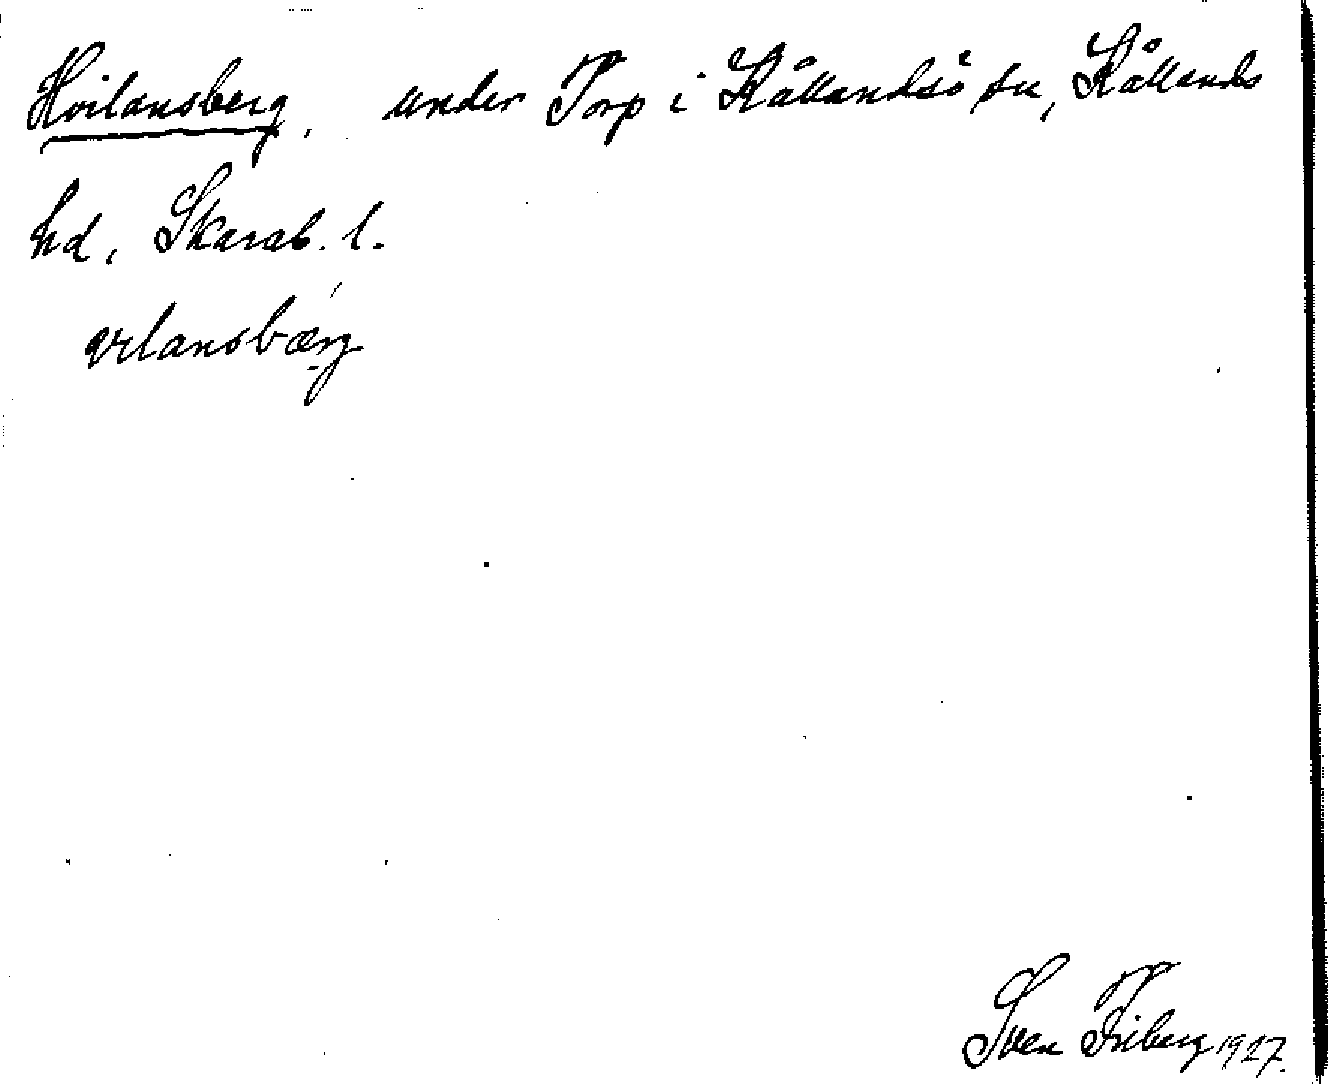 Hvilansberg, under Torp i Kållandsö sn, Kållands
hd, Skarab. l.
vilansbærg
Sven Friberg 1927.